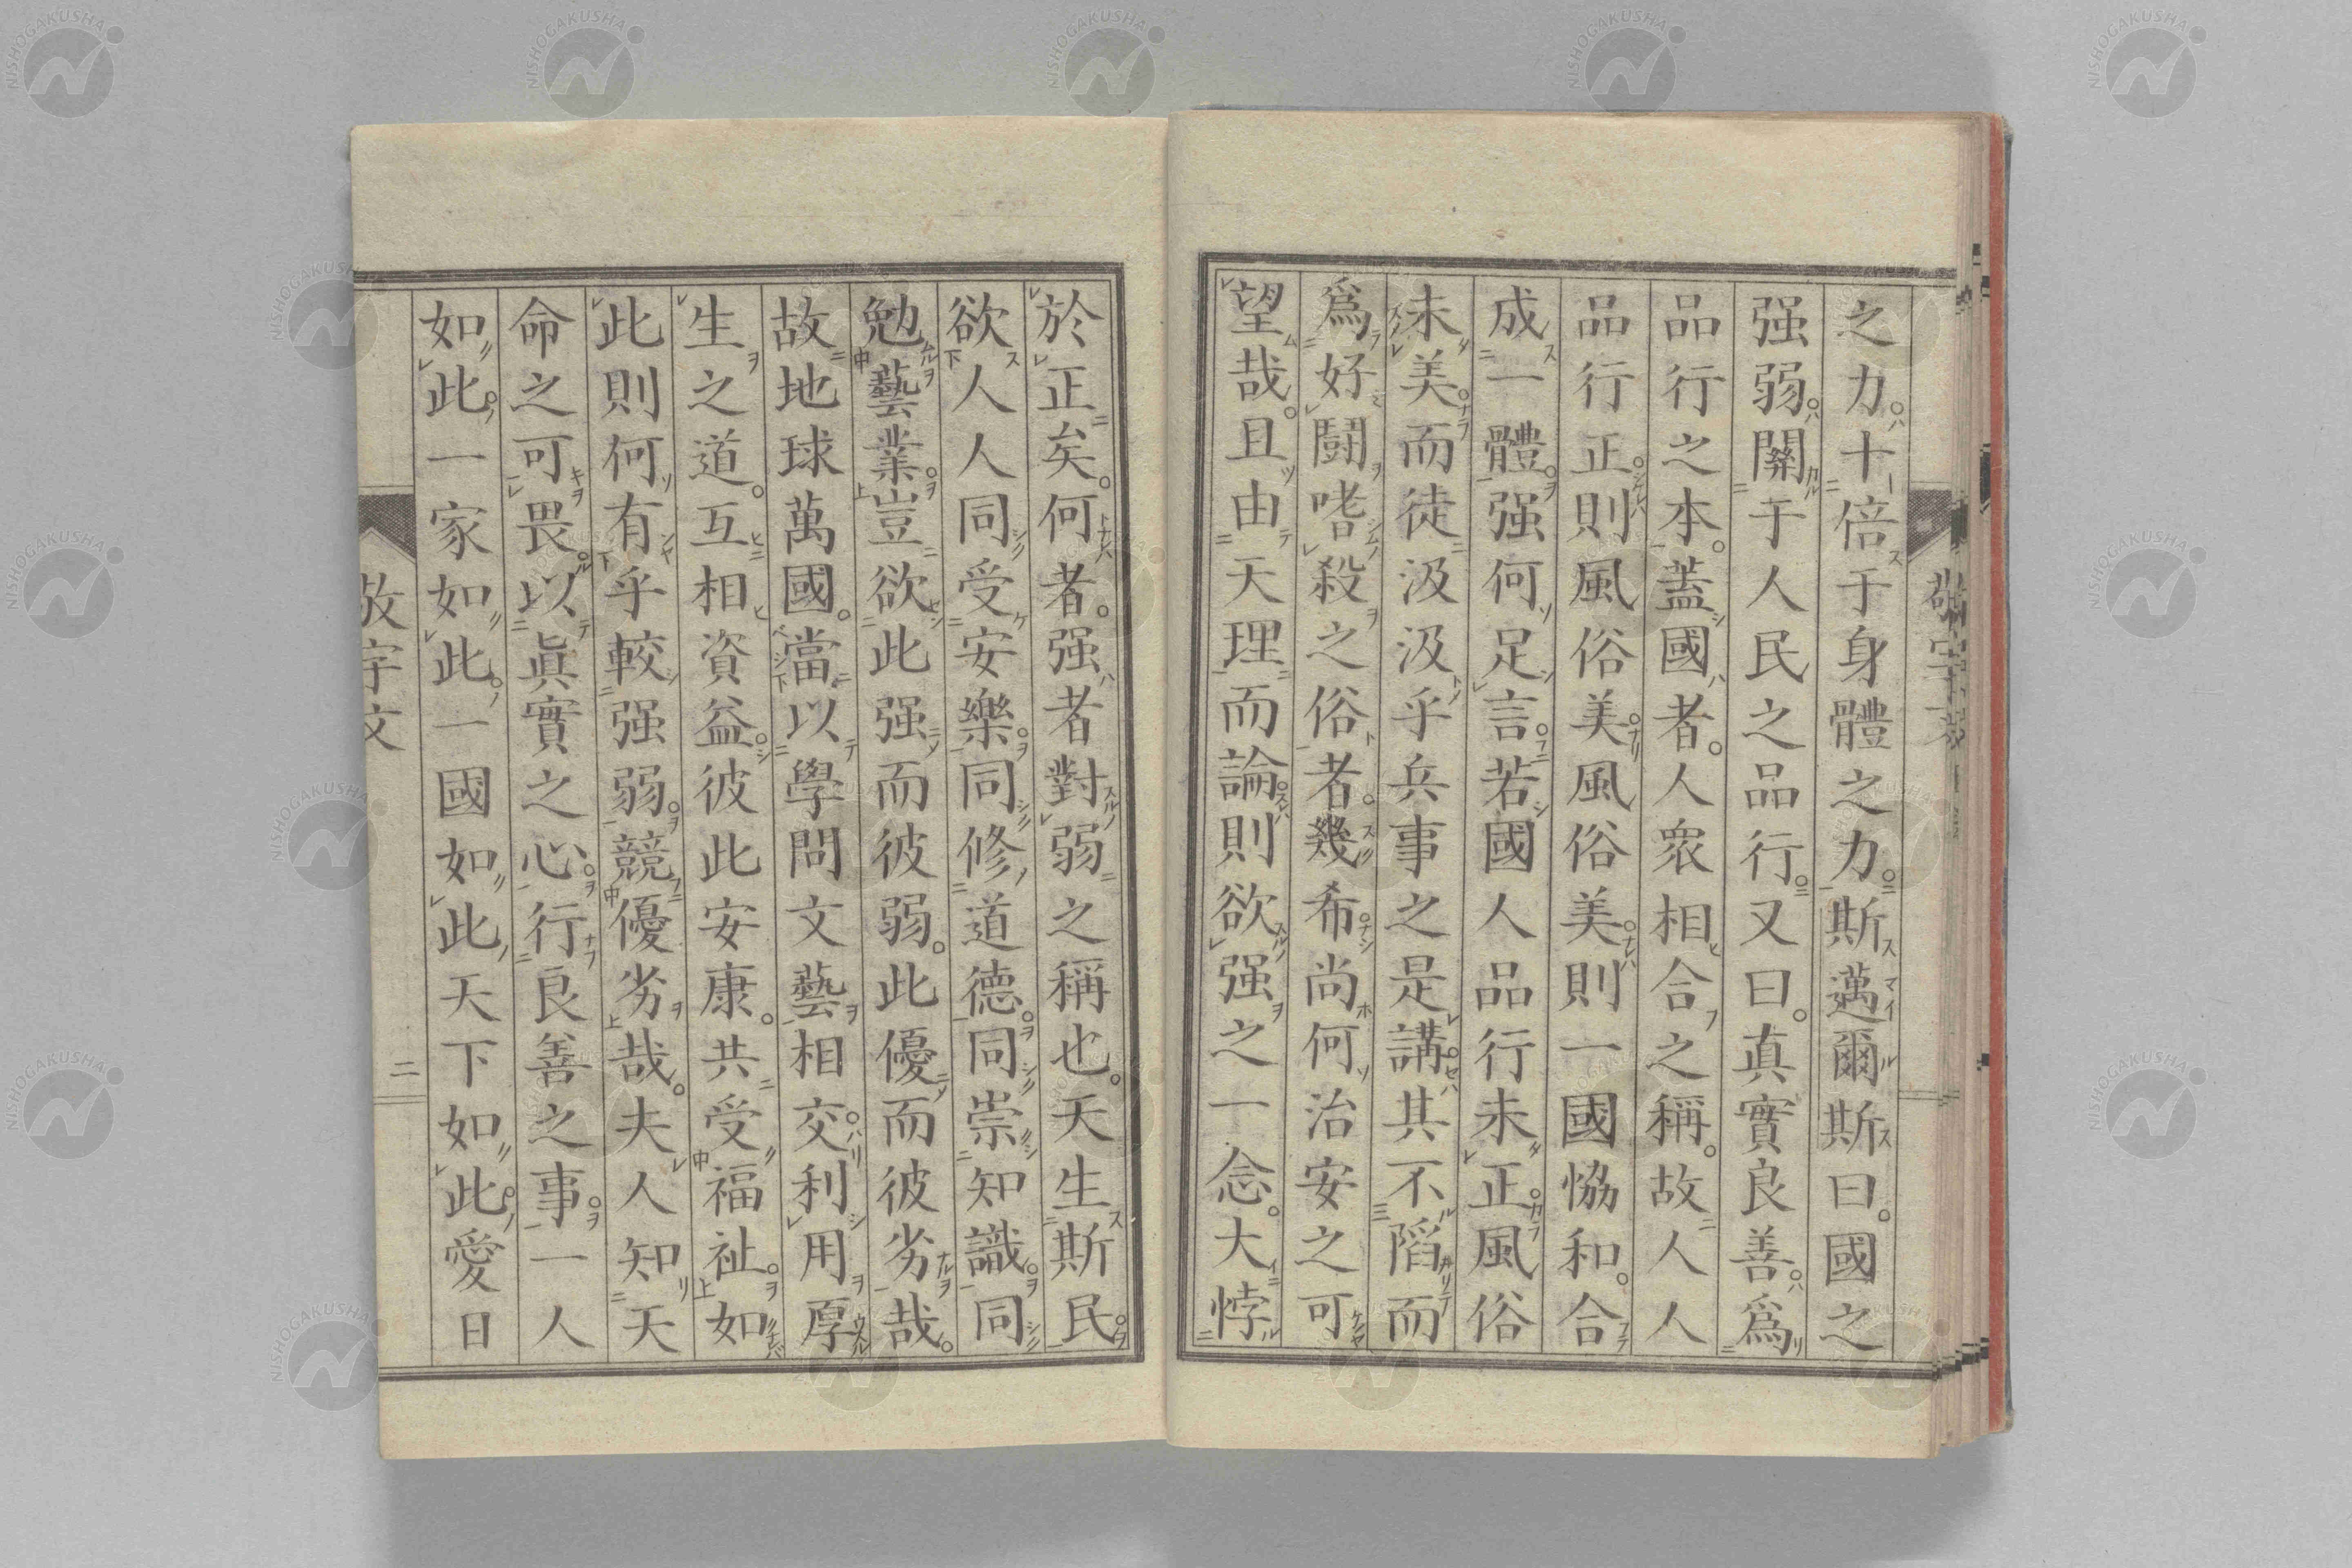 之力。十倍于身體之力。斯邁爾斯曰。國之
强弱。關于人民之品行。又曰。真實良善。爲
品行之本。蓋國者。人衆相合之稱。故人人
品行正。則風俗美。風俗美。則一國恊和。合
成一體。强何足言。若國人品行未正。風俗
未美。而徒汲汲乎兵事之是講。其不陷而
爲好鬪嗜殺之俗者。幾希。尚何治安之可
望哉。且由天理而論。則欲强之一念。大悖
於正矣。何者。强者對弱之稱也。天生斯民。
欲人人同受安樂。同修道德。同崇知識。同
勉藝業。豈欲此强而彼弱。此優而彼劣哉。
故地球萬國。當以學問文藝相交。利用厚
生之道。互相資益。彼此安康。共受福祉。如
此則何有乎較强弱。競優劣哉。夫人知天
命之可畏。以眞實之心。行良善之事。一人
如此。一家如此。一國如此。天下如此。愛日
敬宇文
二
NISHOGAKUSHA